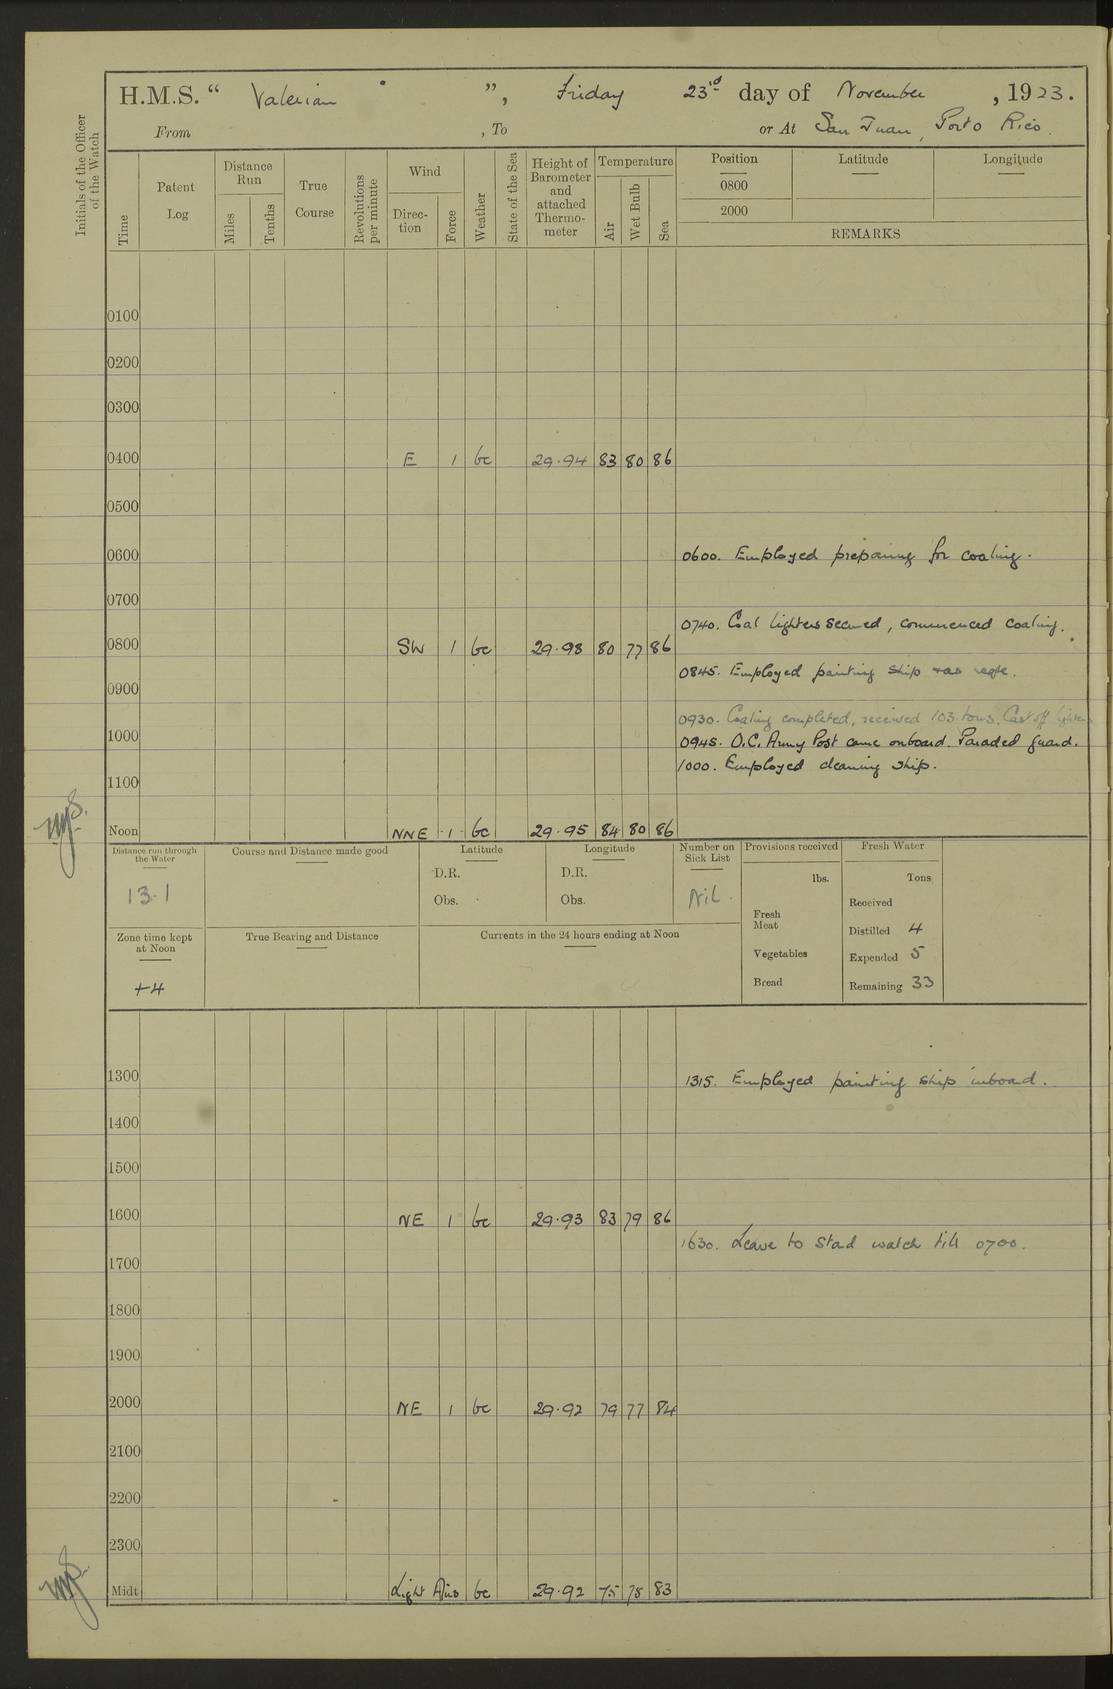 H.M.S. “ Valerian ”, Friday 23rd day of November, 1923.
From , To or At San Juan, Porto Rico.
Initials of the Officer of the Watch
Time
Patent Log
Distance Run
Miles
Tenths
True Course
Revolutions per minute
Wind
Direc-tion
Force
Weather
State of the Sea
Height of Barometer and attached Thermo-meter
Temperature
Air
Wet Bulb
Sea
Position
Latitude
Longitude
0800
2000
REMARKS
0100
0200
0300
0400 E 1 bc 29.94 83 80 86
0500
0600 0600. Employed preparing for coaling.
0700
0740. Coal lighters secured, commenced coaling.
0800 SW 1 bc 29.98 80 77 86
0845. Employed painting ship
0900
0930. Coaling completed, received 103 tons. Cast off
1000 0945. O.C. Army Post came onboard. Paraded guard.
1000. Employed cleaning ship.
1100
Noon NNE 1 bc 29.95 84 80 86
Distance run through the Water
13.1
Zone time kept at Noon
+4
Course and Distance made good
True Bearing and Distance
Latitude
D.R.
Obs.
Longitude
D.R.
Obs.
Currents in the 24 hours ending at Noon
Number on Sick List
Nil.
Provisions received
lbs.
Fresh Meat
Vegetables
Bread
Fresh Water
Tons
Received
Distilled 4
Expended 5
Remaining 33
1300 1315. Employed painting ship inboard.
1400
1500
1600 NE 1 bc 29.93 83 79 86
1630. Leave to Stbd watch till 0700.
1700
1800
1900
2000 NE 1 bc 29.92 79 77 84
2100
2200
2300
Midt Light Airs bc 29.92 75 83